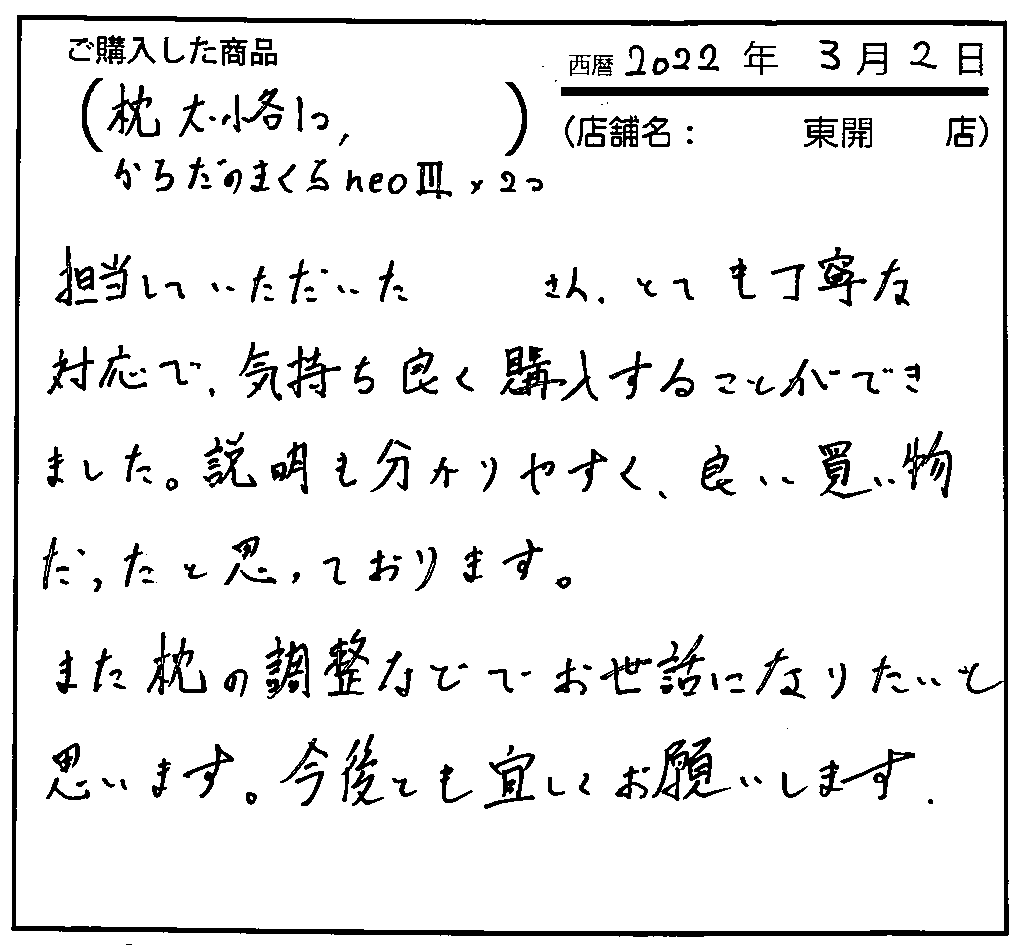 ご購入した商品
西暦 2022 年 3 月 2 日
(枕 大・小各1つ, )
(店舗名： 東開 店)
からだのまくらneoⅢ×2つ
担当していただいた さん、とても丁寧な
対応で、気持ち良く購入することができ
ました。説明も分かりやすく、良い買い物
だったと思っております。
また枕の調整などでお世話になりたいと
思います。今後とも宜しくお願いします.